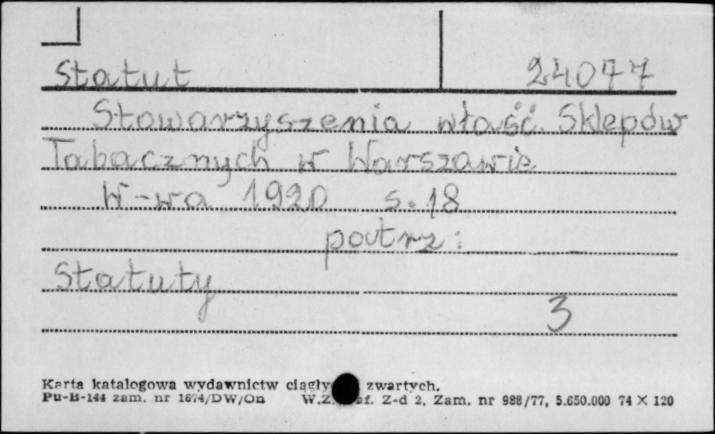 Statut 24077
Stowarzyszenia właść. Sklepów
Tabacznych w Warszawie
W-wa 1920 s. 18
patrz:
Statuty
3
Karta katalogowa wydawnictw ciągły zwartych.
Pu-B-144 zam. nr 1674/DW/On W.Z. af. Z-d 2, Zam. nr 988/77, 5.650.000 74 × 120